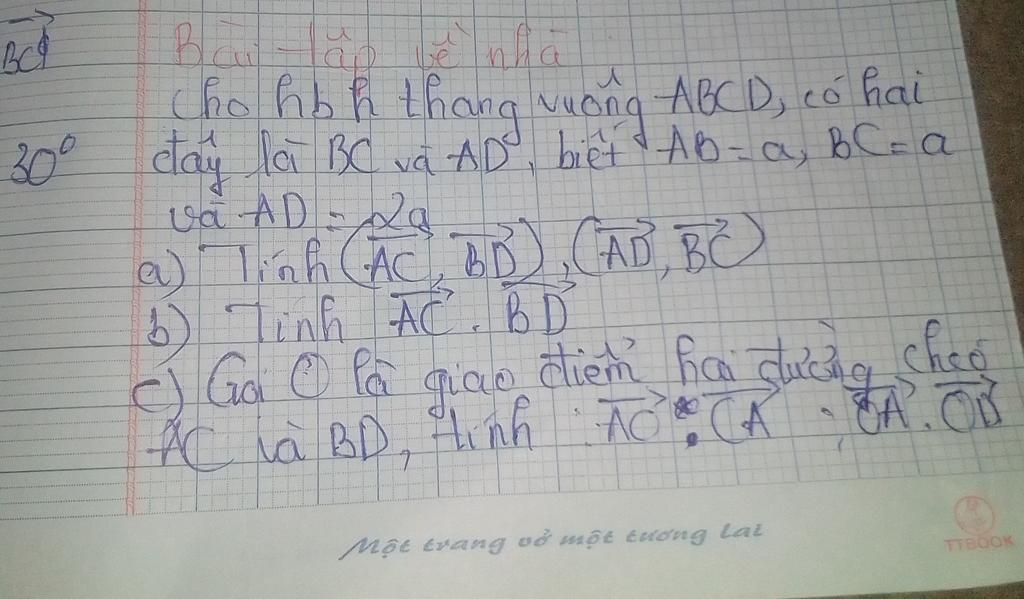 BC
Bài tập về nhà
Cho hbh thang vuông ABCD, có hai
30° đáy là BC và AD, biết AB = a, BC = a
và AD = 2a
a) Tính (AC, BD), (AD, BC)
b) Tính AC . BD
c) Gọi O là giao điểm hai đường chéo
AC là BD, tính : AO . CA ; OA . OB
Một trang vở một tương lai
TTBOOK